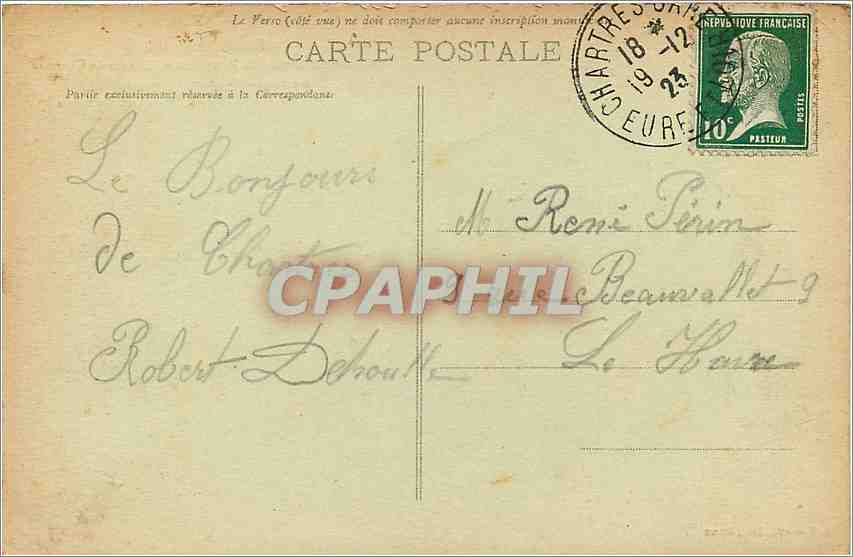 Le Verso (côté vue) ne doit comporter aucune inscription
CARTE POSTALE
Partie exclusivement réservée à la Correspondance
CHARTRES GARE
* 18 -12
19 23
EURE ET LOIR
REPUBLIQUE FRANÇAISE
POSTES
10c
PASTEUR
Le Bonjours
de Chartres
Robert
M René Périn
9 rue Beauvallet 9
Le Havre
CPAPHIL